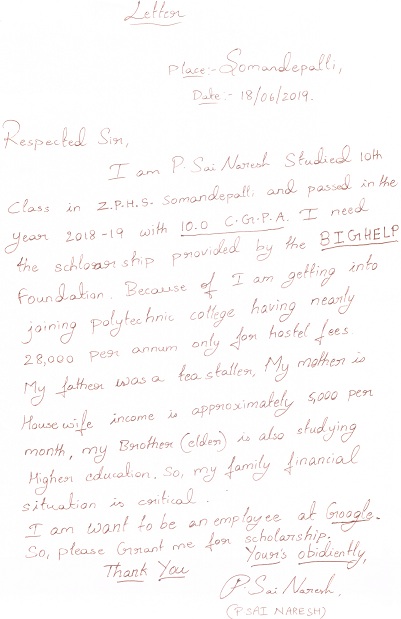 Letter
Place:- Somandepalli,
Date:- 18/06/2019.
Respected Sir,
I am P. Sai Naresh Studied 10th
Class in Z.P.H.S- Somandepalli and passed in the
year 2018-19 with 10.0 C.G.P.A. I need
the schloarship provided by the BIGHELP
Foundation. Because of I am getting into
joining polytechnic college having nearly
28,000 per annum only for hostel fees.
My father was a tea staller, My mother is
Housewife income is approximately 5,000 per
month, my Brother (elder) is also studying
Higher education. So, my family financial
situation is critical.
I am want to be an employee at Google.
So, please Grant me for scholarship.
Thank You
Your's obidiently,
P. Sai Naresh.
(P SAI NARESH)